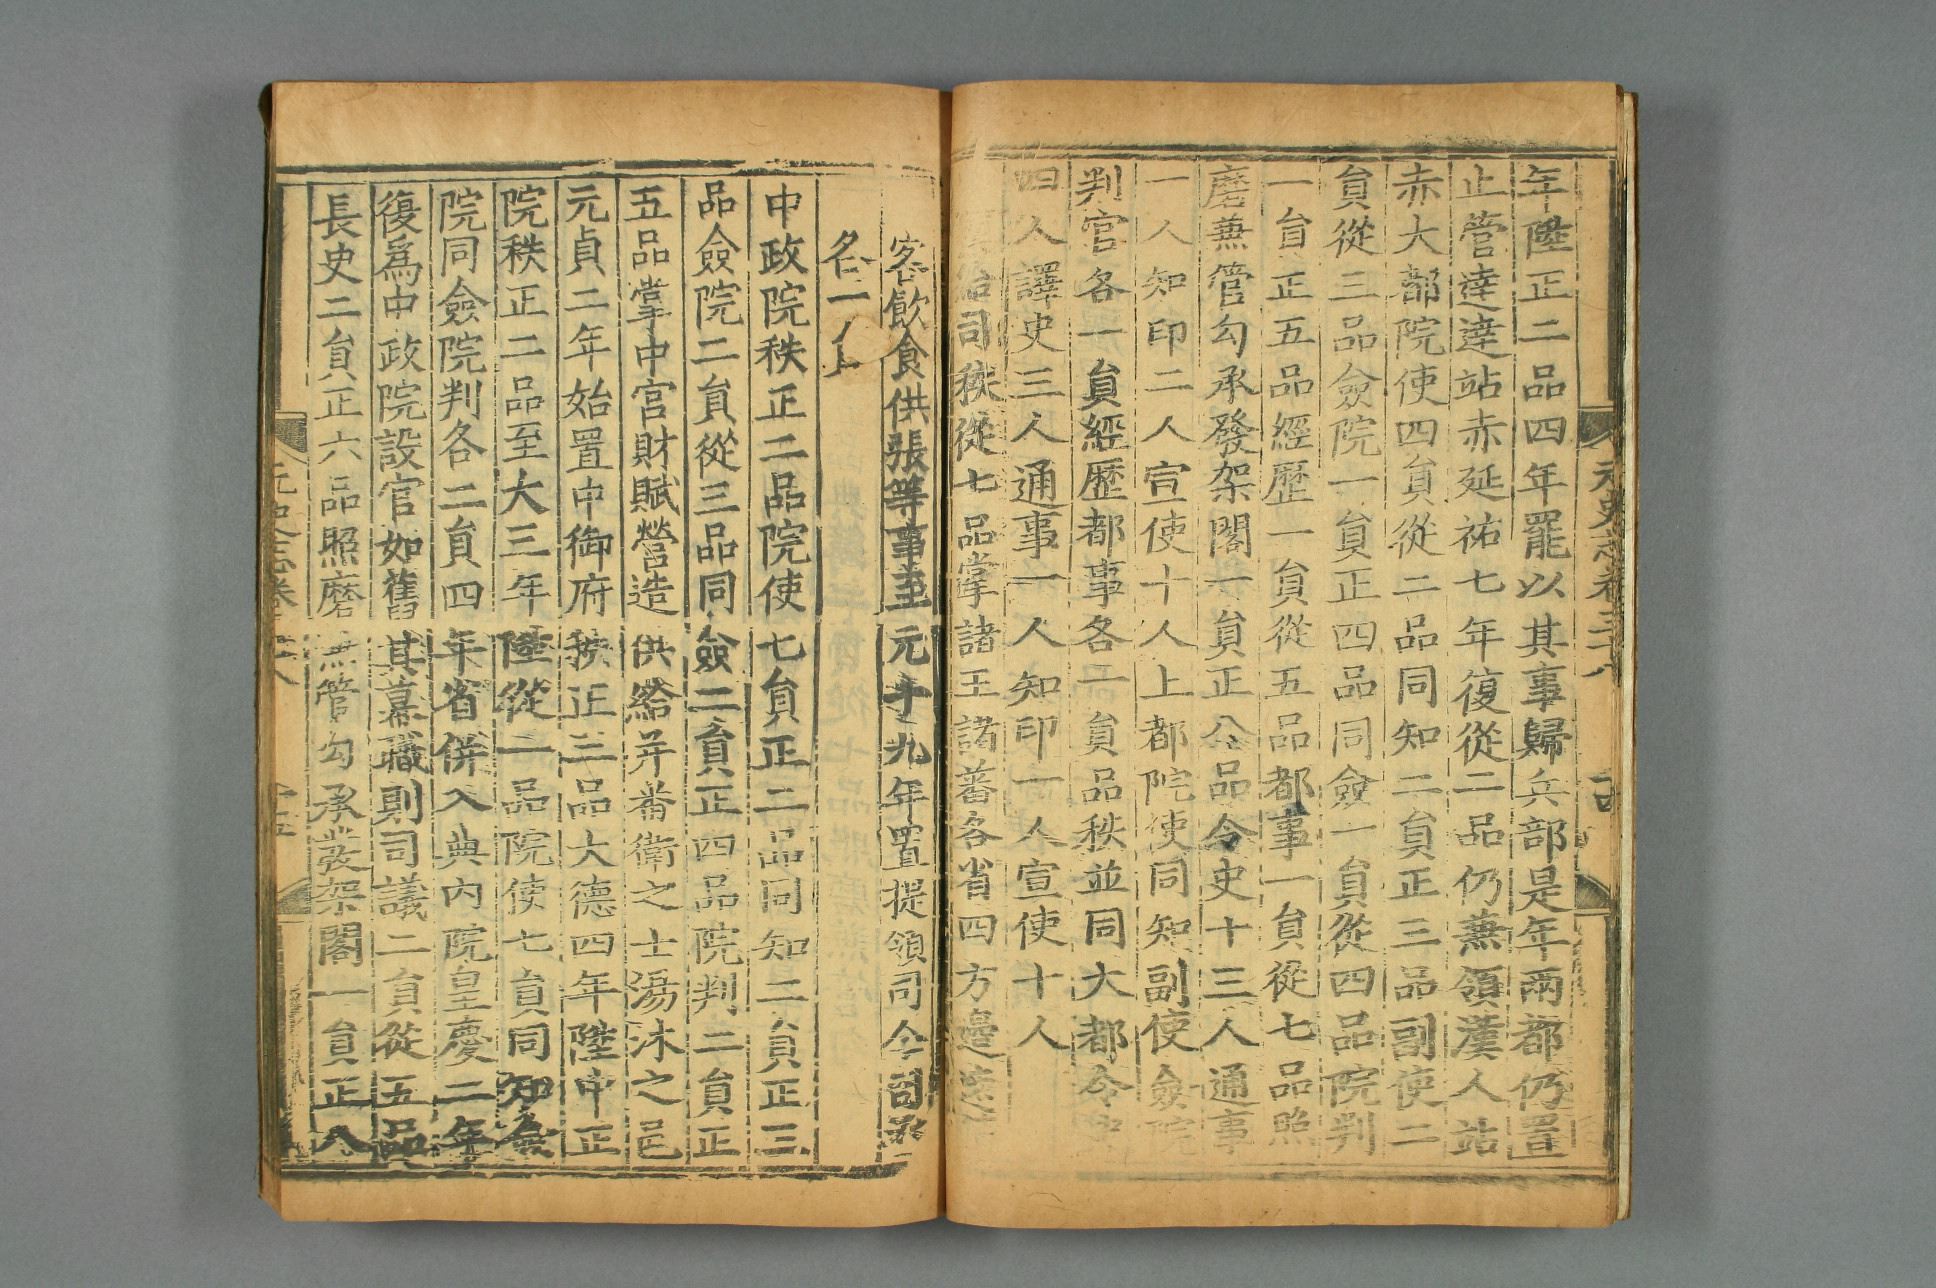 元史志卷三十八
年陞正二品四年罷以其事歸兵部是年兩都仍置
止管達達站赤延祐七年復從二品仍蕪領漢人站
赤大都院使四貟從二品同知二貟正三品副使二
貟從三品僉院一貟正四品同僉一貟從四品院判
一貟正五品經歷一貟從五品都事一貟從七品照
磨蕪管勾承發架閣一貟正八品令史十三人通事
一人知印二人宣使十人上都院使同知副使僉院
判官各一貟經歷都事各一貟品秩並同大都令史
四人譯史三人通事一人知印一人宣使十人
司獄從七品掌諸王諸蕃各省四方邊遠
客飲食供張等事至元十九年置提領司令司丞
各一人
中政院秩正二品院使七貟正二品同知二貟正三
品僉院二貟從三品同僉二貟正四品院判二貟正
五品掌中宮財賦營造供給并蕃衛之士湯沐之邑
元貞二年始置中御府秩正三品大德四年陞中正
院秩正二品至大三年陞從一品院使七貟同知僉
院同僉院判各二貟四年省併入典內院皇慶二年
復爲中政院設官如舊其幕職則司議二貟從五品
長史二貟正六品照磨蕪管勾承發架閣一貟正八
元史志卷三十八 十五